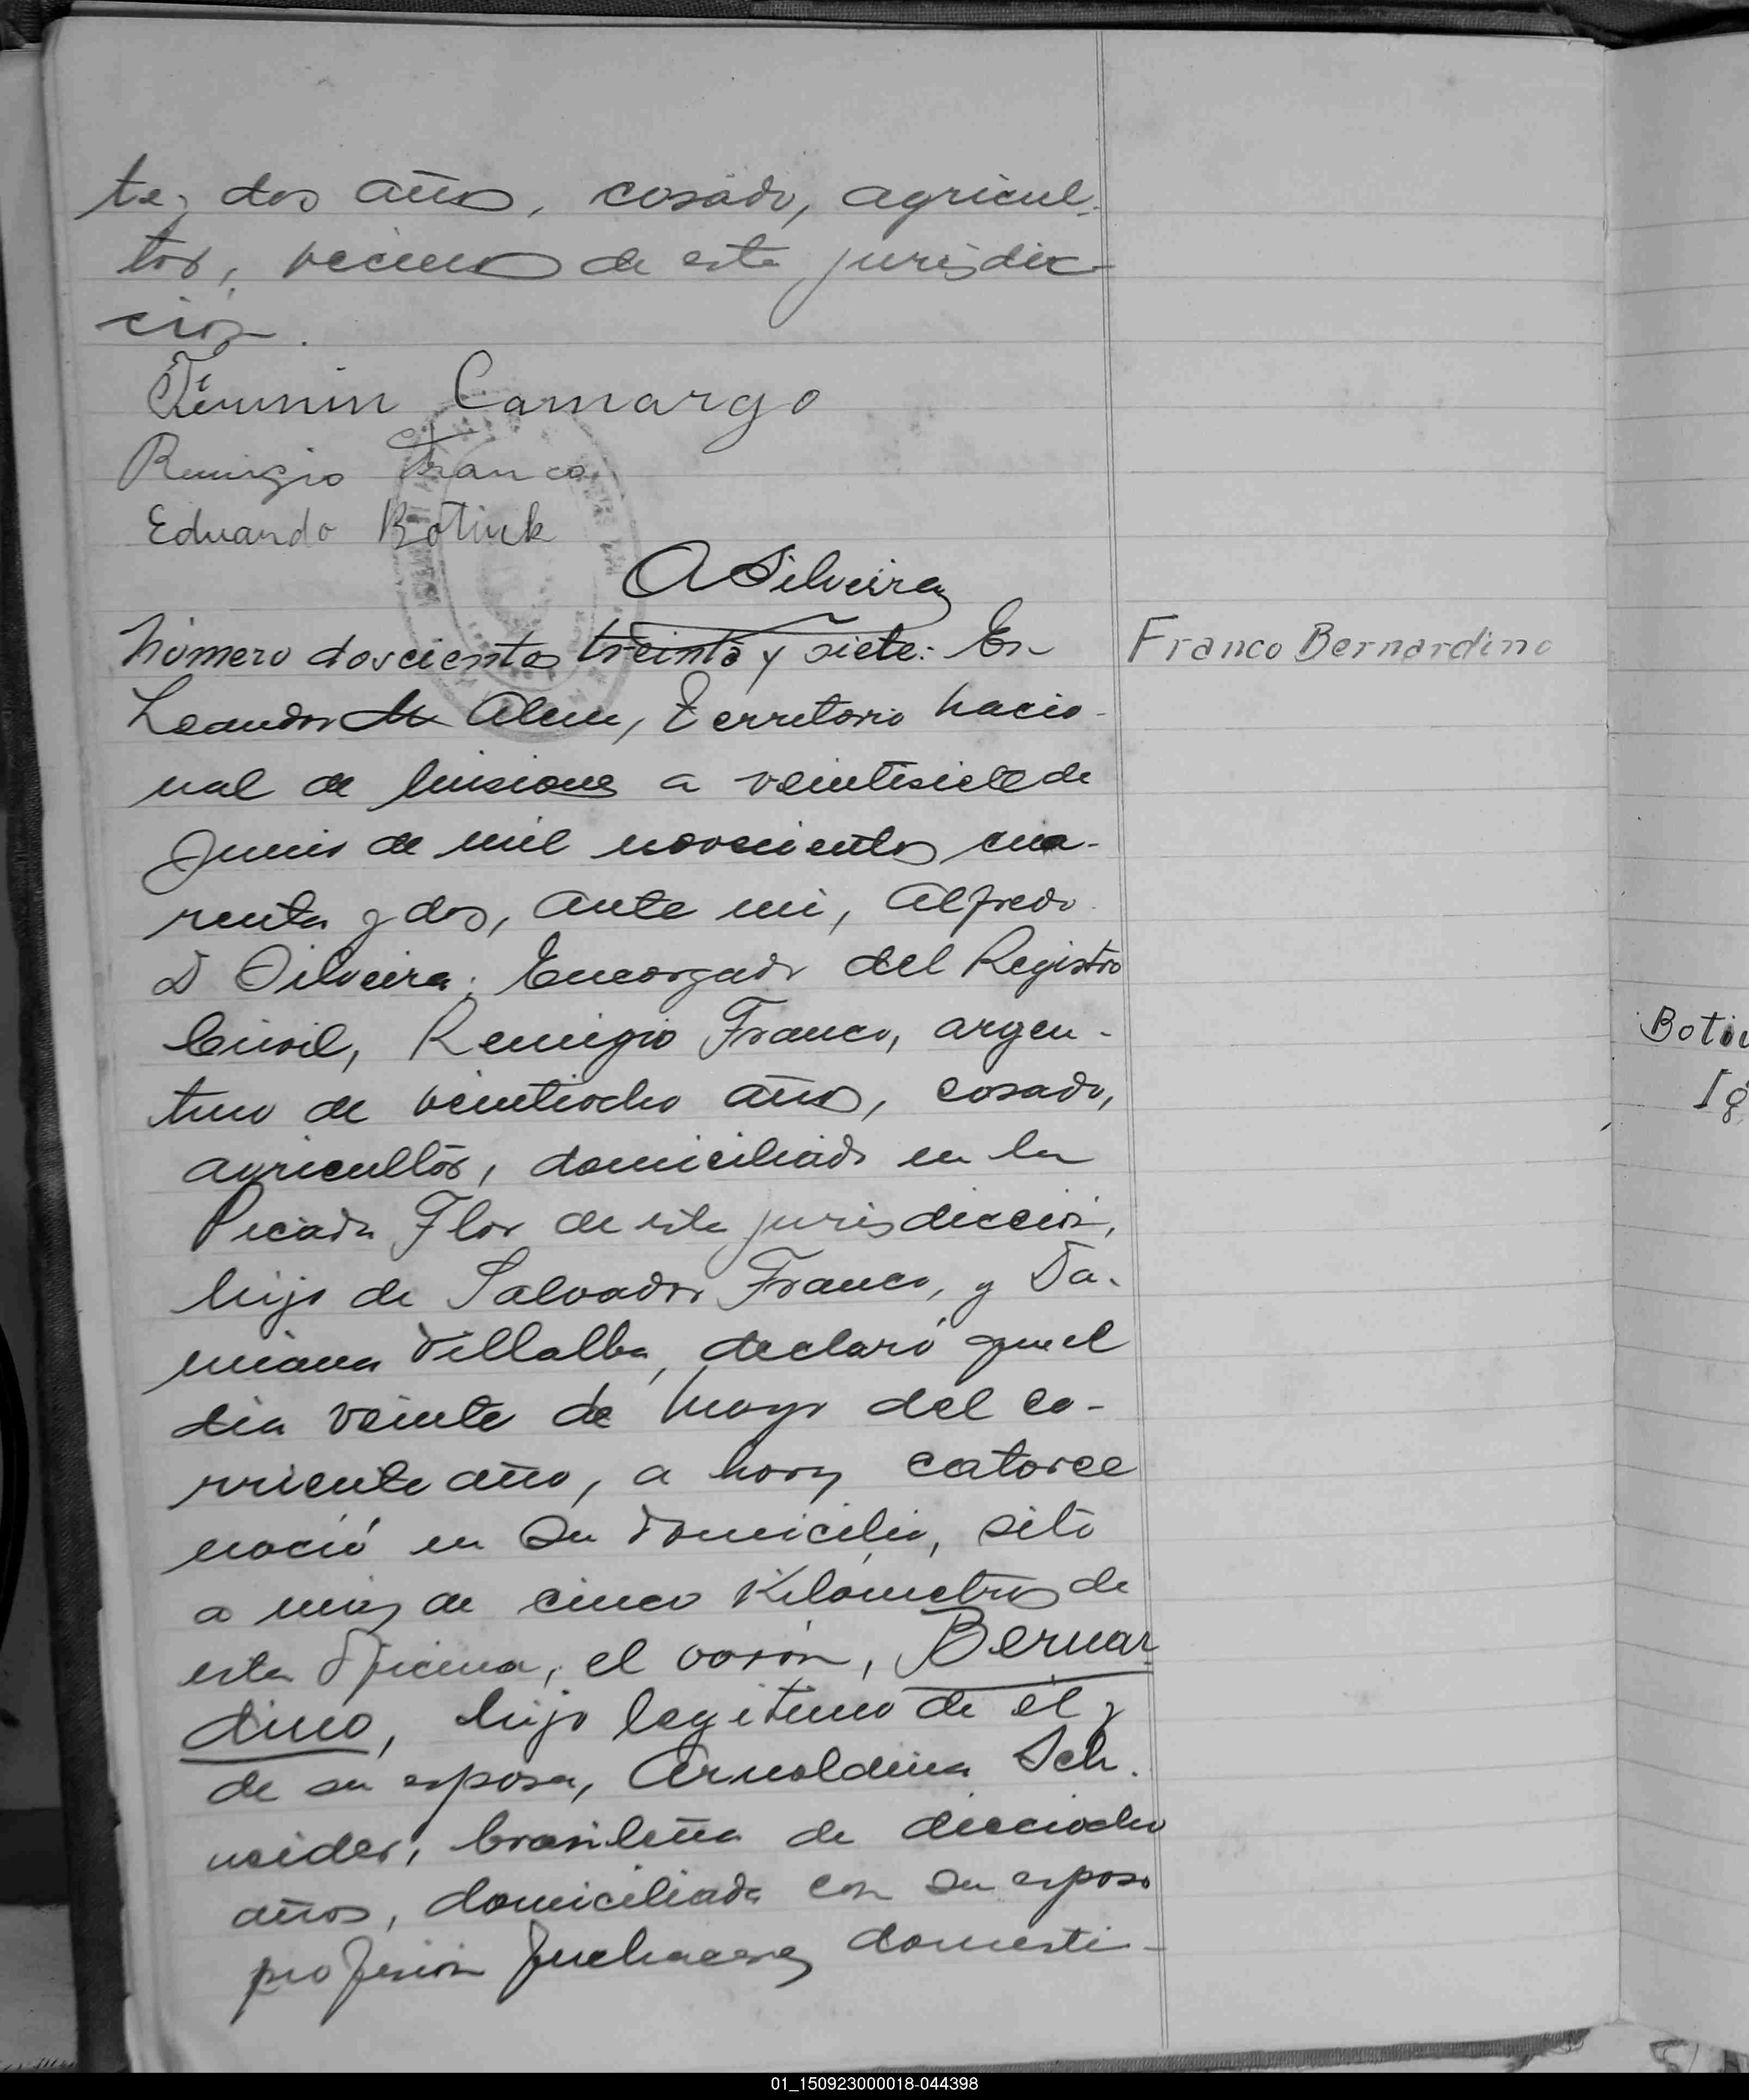 te, dos años, casado, agricul-
tor, vecino de esta jurisdic-
ción.
Fermin Camargo
Remigio Franco
Eduardo Botiuk
A Silveira
Número doscientos treinta y siete: En
Leandro N Alem, Territorio Nacio-
nal de Misiones a veintisiete de
Junio de mil novecientos cua-
renta y dos, ante mi, Alfredo
D Silveira, Encargado del Registro
Civil, Remigio Franco, argen-
tino de veintiocho años, casado,
agricultor, domiciliado en la
Picada Flor de esta jurisdiccion,
hijo de Salvador Franco, y Da-
miana Villalba, declaró que el
dia veinte de Mayo del co-
rriente año, a horas catorce
nació en su domicilio, sito
a mas de cinco Kilómetros de
esta Oficina, el varón, Bernar
dino, hijo legitimo de él y
de su esposa, Arnoldina Sch.
neider, brasileña de dieciocho
años, domiciliada con su esposo
profesion quehaceres domesti-
Franco Bernardino
Boti
Ig
01_150923000018-044398